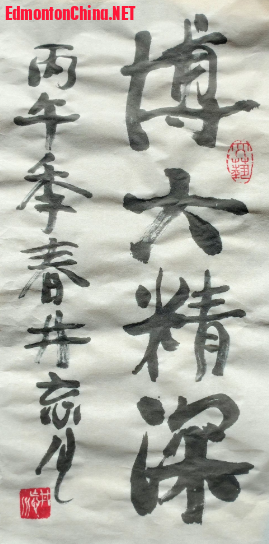 EdmontonChina.NET
博大精深
丙午季春井忘生